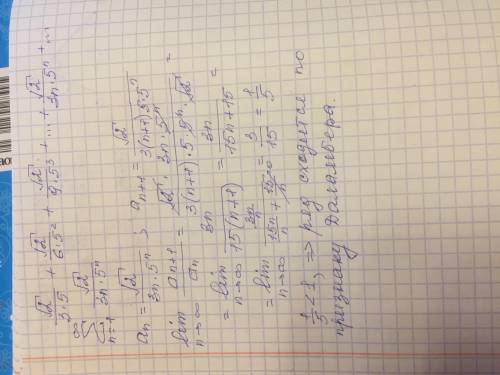 √2/(3·5) + √2/(6·5²) + √2/(9·5³) + ... + √2/(3n·5ⁿ) + ...
∞ ∑ n=1 √2/(3n·5ⁿ)
aₙ = √2/(3n·5ⁿ) ; aₙ₊₁ = √2/(3(n+1)·5·5ⁿ)
lim n→∞ aₙ₊₁/aₙ = (√2 · 3n·5ⁿ)/(3(n+1)·5·5ⁿ·√2) =
= lim n→∞ 3n/(15(n+1)) = 3n/(15n+15) =
= lim n→∞ (3n/n)/(15n/n + 15/n) = 3/15 = 1/5
1/5 < 1, => ряд сходится по
признаку Даламбера.